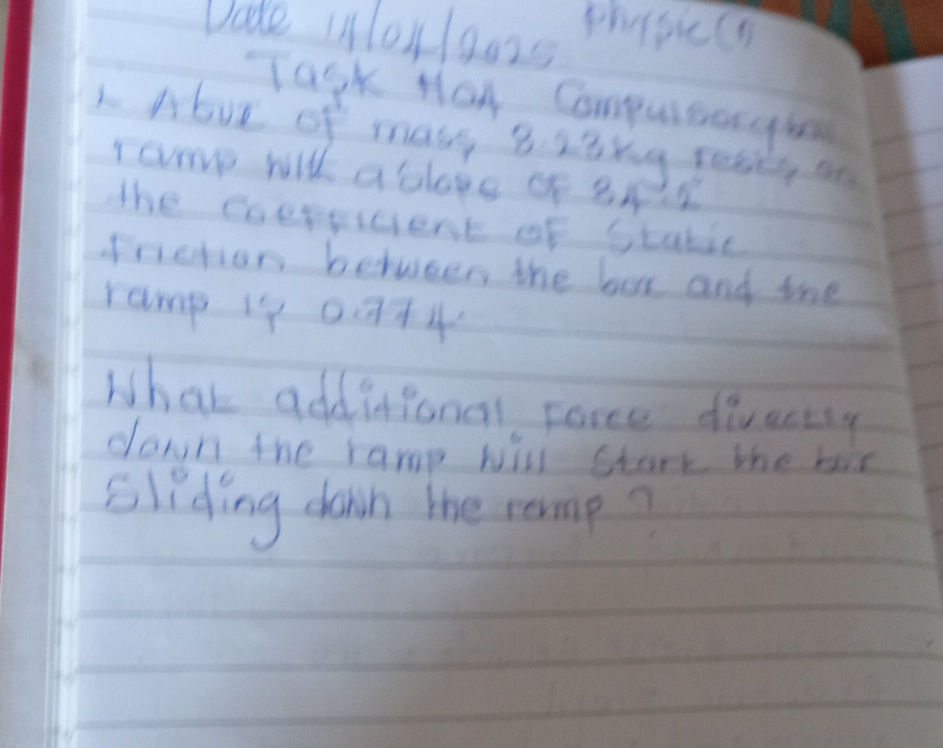 Date 14/04/2025 Physic(s)
Task
1. A box of mass 8.23kg rests on
ramp with a slope of 34.2°
the coefficient of static
friction between the box and the
ramp is 0.774.
What additional Force directly
down the ramp will start the box
Sliding down the ramp?